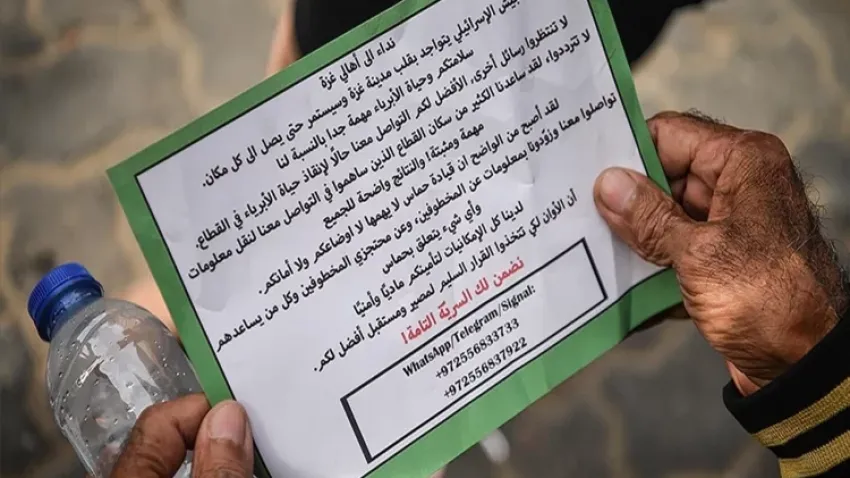 نداء الى أهالي غزة
يش الإسرائيلي يتواجد بقلب مدينة غزة وسيستمر حتى يصل الى كل مكان.
سلامتكم وحياة الأبرياء مهمة جدا بالنسبة لنا
لا تنتظروا رسائل أخرى، الأفضل لكم التواصل معنا حالًا لإنقاذ حياة الأبرياء في القطاع.
لا تترددوا، لقد ساعدنا الكثير من سكان القطاع الذين ساهموا في التواصل معنا لنقل معلومات
مهمة ومثبتة! والنتائج واضحة للجميع
لقد أصبح من الواضح ان قيادة حماس لا يهمها لا اوضاعكم ولا أمانكم.
تواصلوا معنا وزوّدونا بمعلومات عن المخطوفين، وعن محتجزي المخطوفين وكل من يساعدهم
وأي شيء يتعلق بحماس
لدينا كل الإمكانيات لتأمينكم ماديًا وأمنيًا
أن الأوان لكي تتخذوا القرار السليم لمصير ومستقبل أفضل لكم.
نضمن لك السريّة التامة!
WhatsApp/Telegram/Signal:
+972556833733
+972556837922